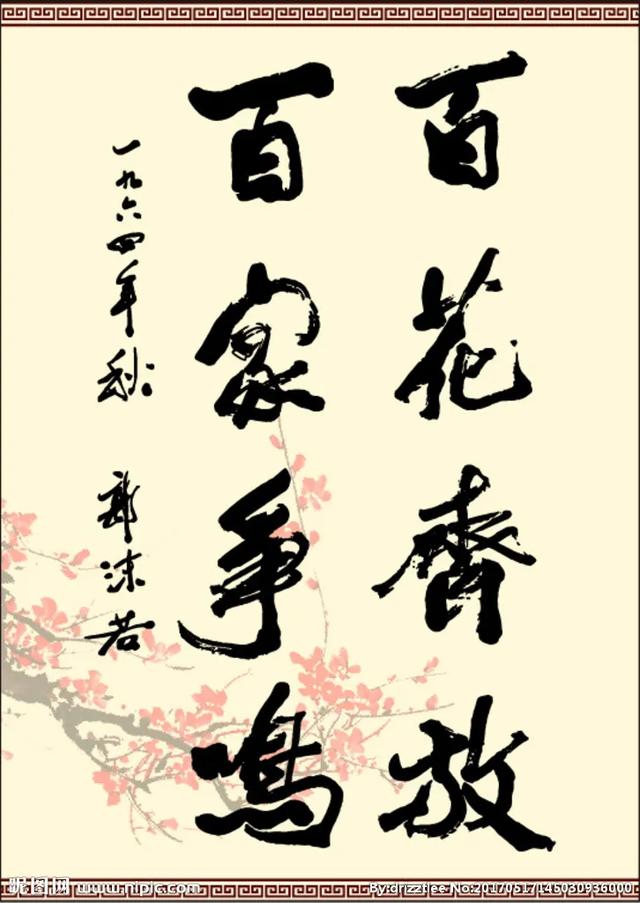 百花齊放
百家爭鳴
一九六四年秋
郭沫若
昵图网 www.nipic.com
By:drizztlee No:20170517145030936000